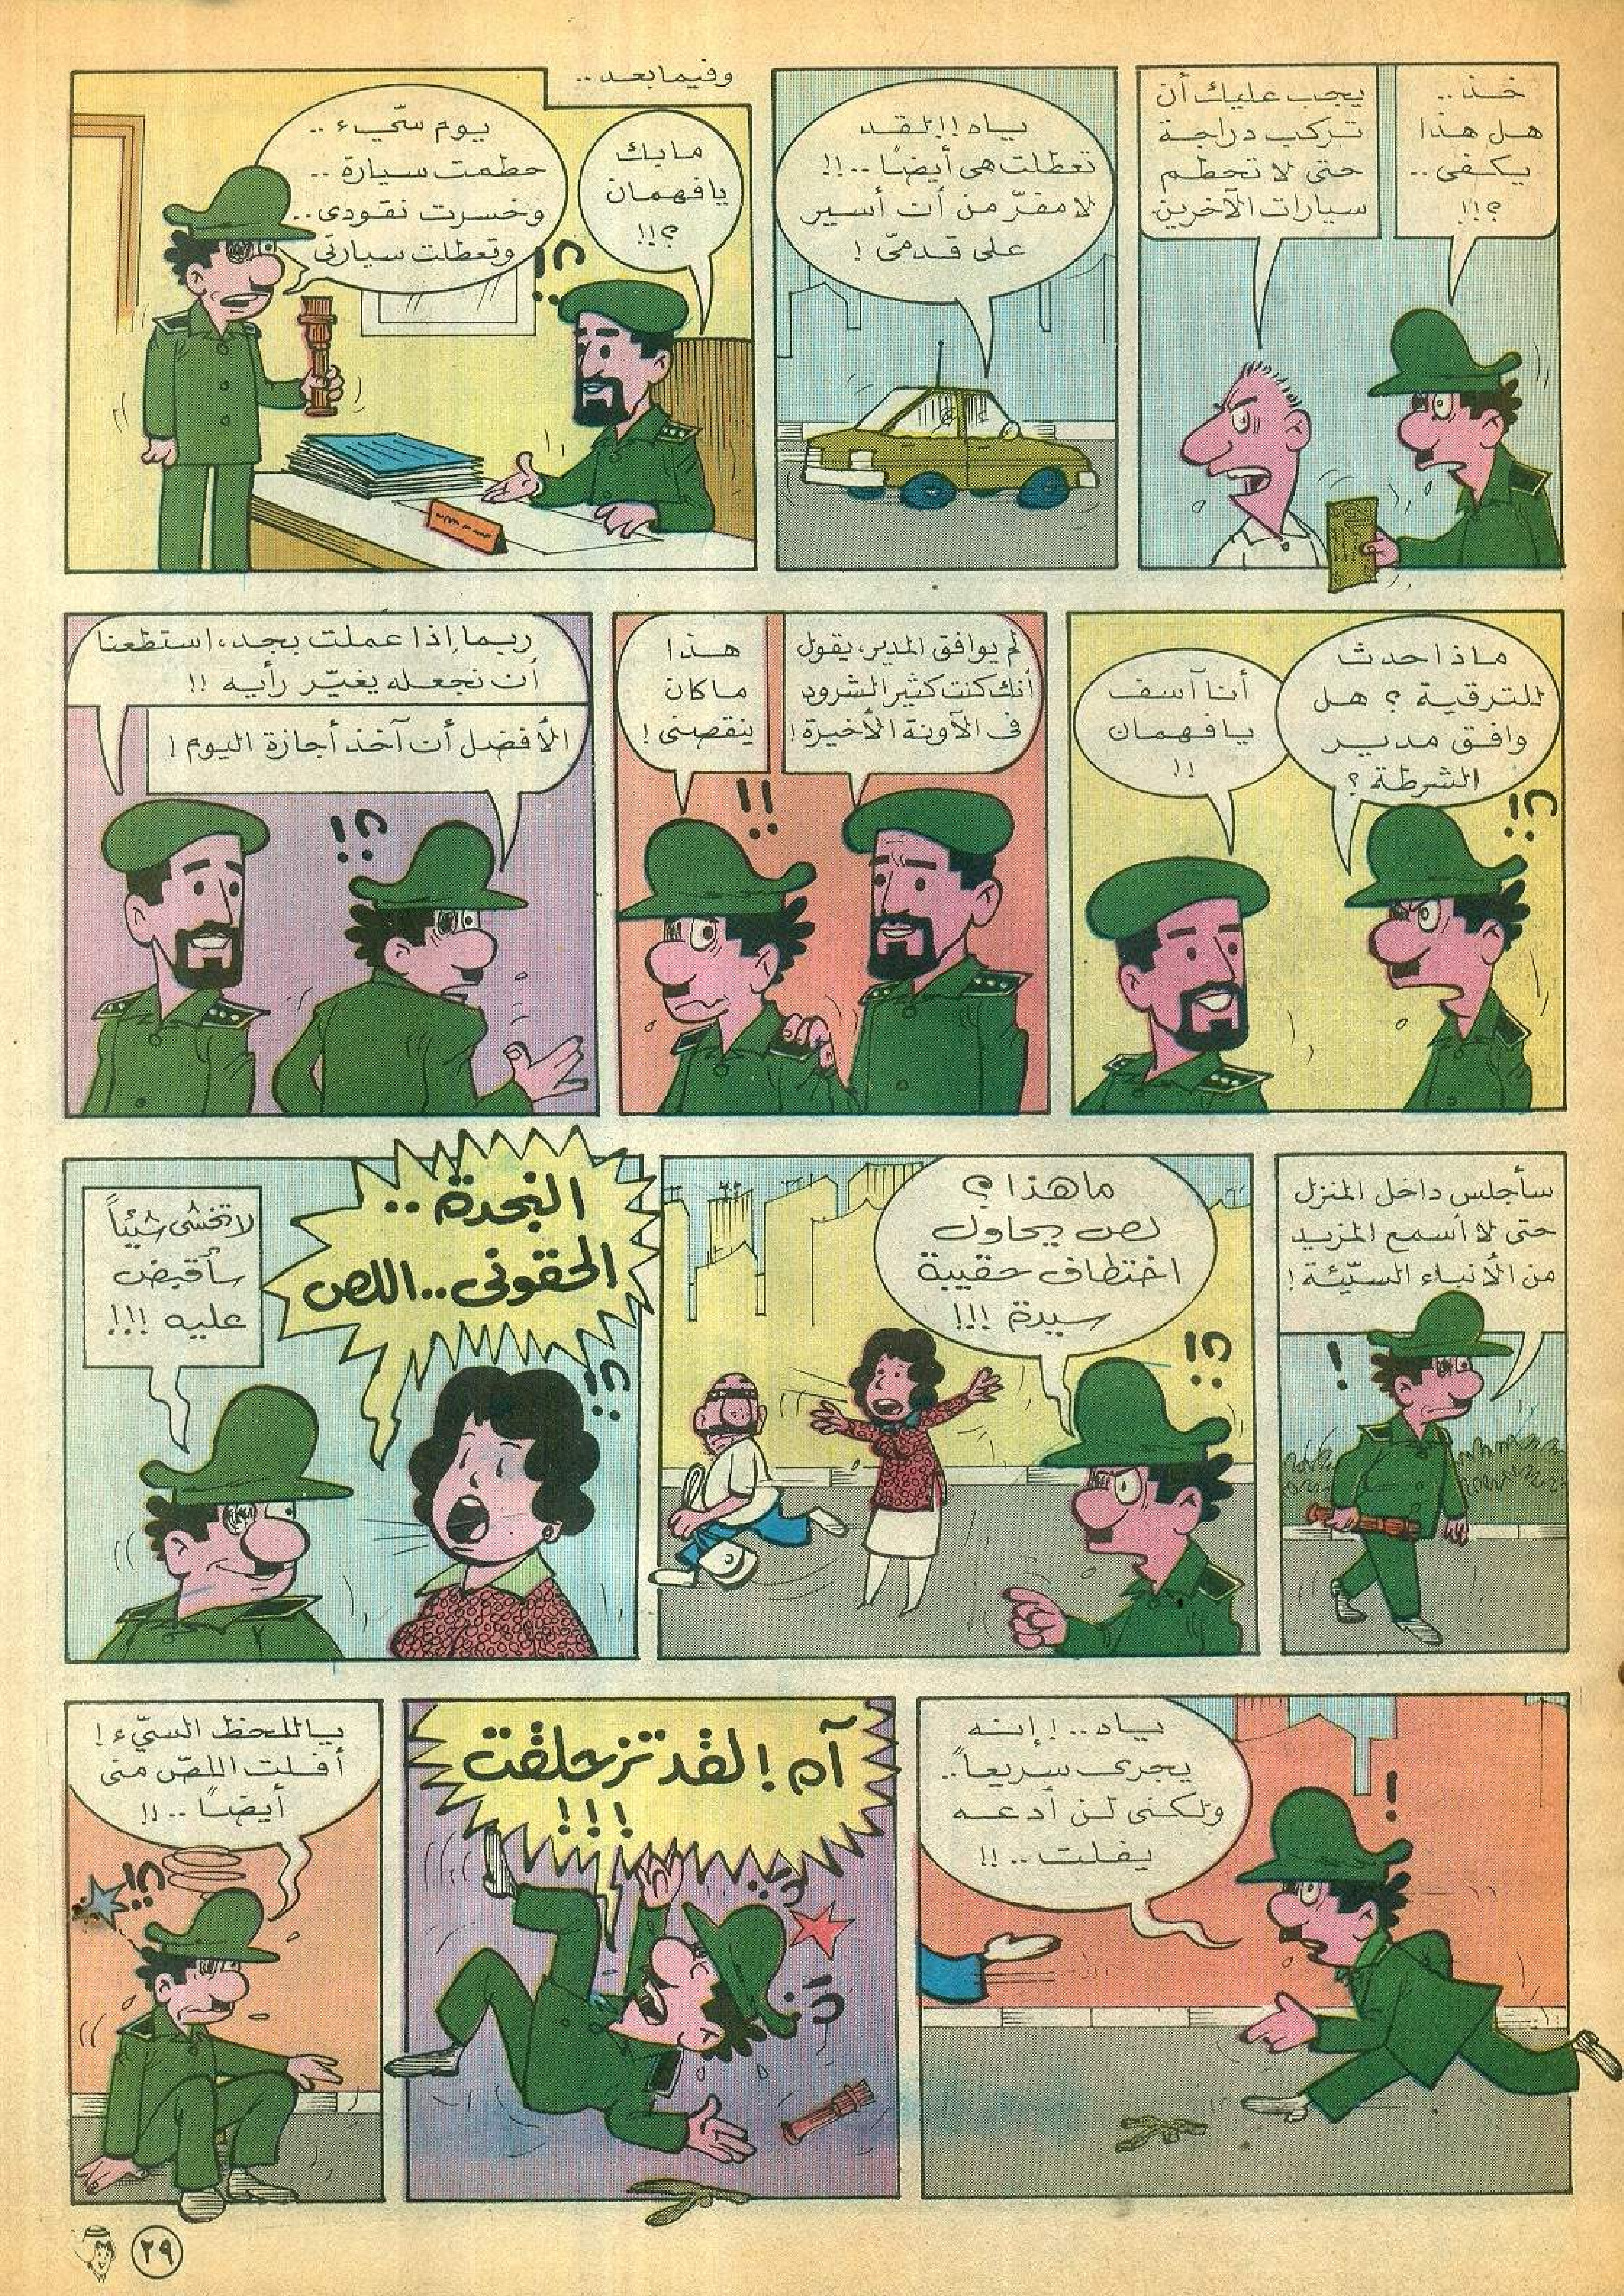 خذ..
هل هذا
يكفى..
؟!!
يجب عليك أن
تركب دراجة
حتى لا تحطم
سيارات الآخرين
ياه!! لقد
تعطلت هى أيضًا..!!
لا مفرّ من أن أسير
على قدمىّ !
وفيما بعد ..
مابك
يافهمان
؟!!
يوم سيّء ..
حطمت سيارة ..
وخسرت نقودى..
وتعطلت سيارتى
؟!
ماذا حدث
للترقية ؟ هل
وافق مدير
الشرطة ؟
أنا آسف
يافهمان
!!
؟!
لم يوافق المدير، يقول
أنك كنت كثير الشرود
فى الآونة الأخيرة !
هذا
ماكان
ينقصنى !
!!
ربما إذا عملت بجد، استطعنا
أن نجعله يغيّر رأيه !!
الأفضل أن آخذ أجازة اليوم !
؟!
سأجلس داخل المنزل
حتى لا أسمع المزيد
من الأنباء السيّئة !
!
ماهذا ؟
لص يحاول
اختطاف حقيبة
سيدة !!!
؟!
النجدة ..
الحقونى .. اللص
لا تخشى شيئاً
سأقبض
عليه !!!
؟!
ياه ..! إنه
يجرى سريعاً..
ولكنى لن أدعه
يفلت .. !!
!
آه ! لقد تزحلقت
!!!
ياللحظ السيّء !
أفلت اللصّ منى
أيضاً .. !!
؟!
٢٩